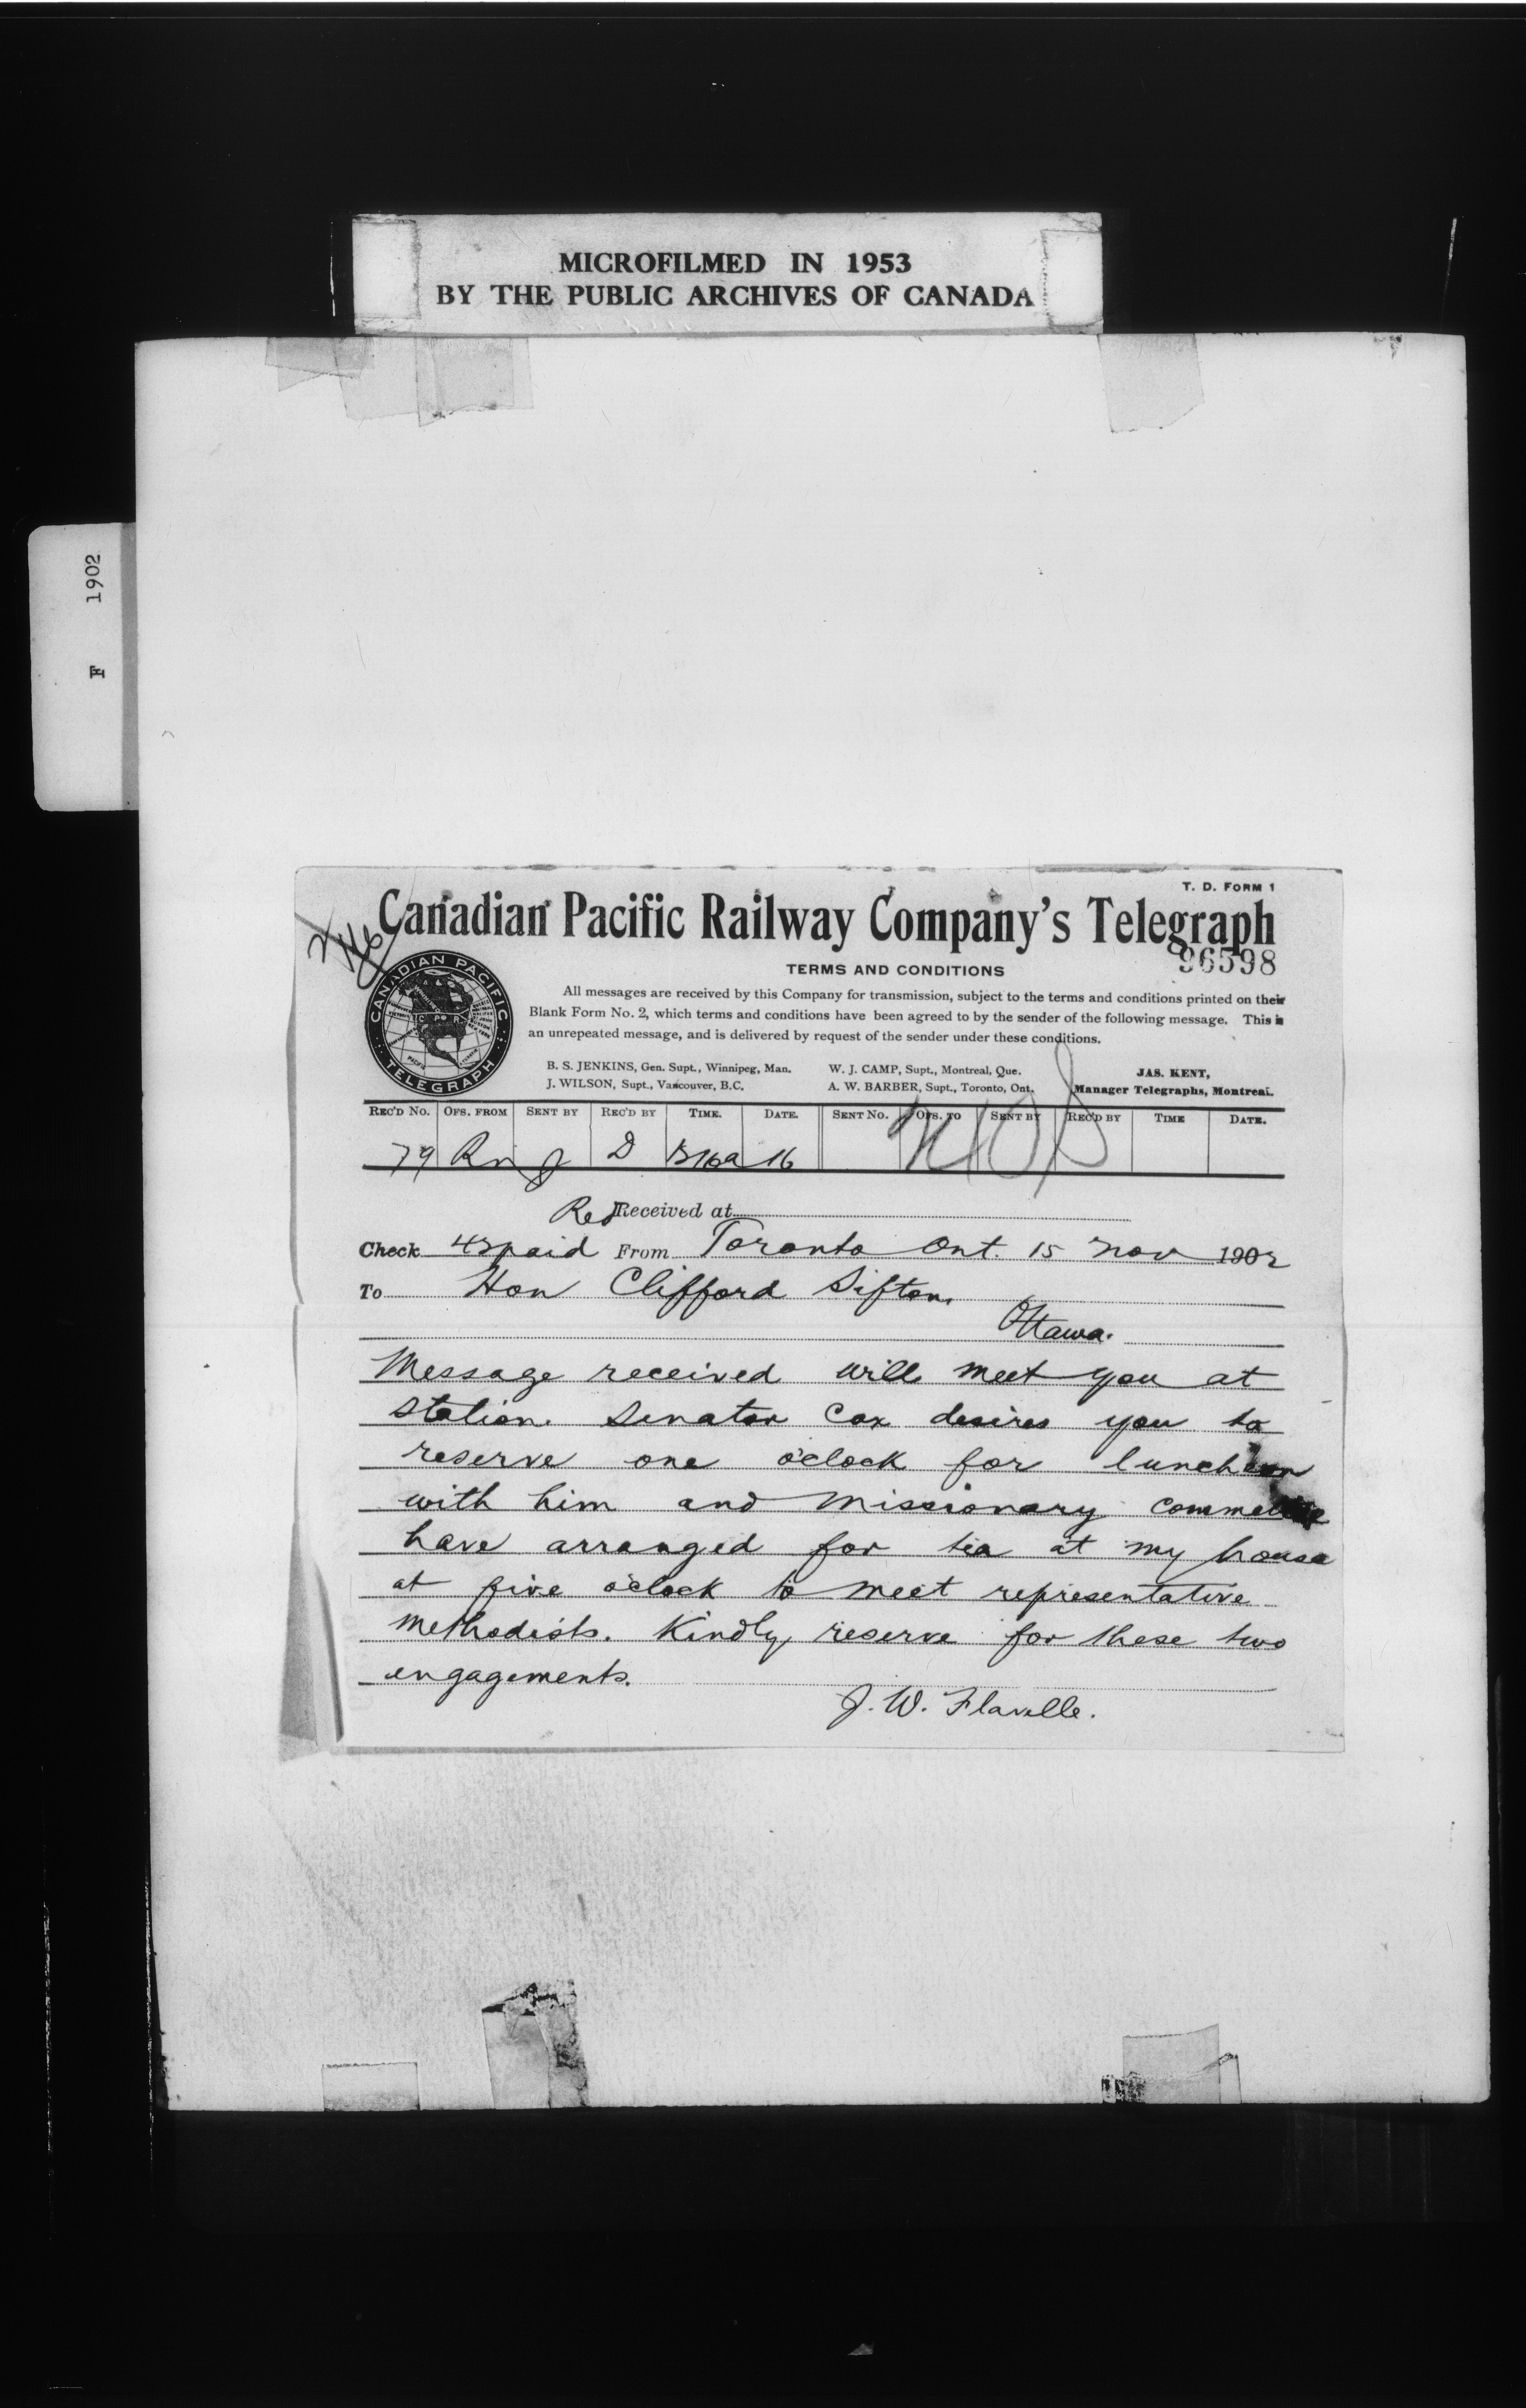 MICROFILMED IN 1953
BY THE PUBLIC ARCHIVES OF CANADA
F 1902
T. D. FORM 1
Canadian Pacific Railway Company's Telegraph
96598
TERMS AND CONDITIONS
All messages are received by this Company for transmission, subject to the terms and conditions printed on their
Blank Form No. 2, which terms and conditions have been agreed to by the sender of the following message. This is
an unrepeated message, and is delivered by request of the sender under these conditions.
CANADIAN PACIFIC
C P R
TELEGRAPH
B. S. JENKINS, Gen. Supt., Winnipeg, Man. W. J. CAMP, Supt., Montreal, Que. JAS. KENT,
J. WILSON, Supt., Vancouver, B.C. A. W. BARBER, Supt., Toronto, Ont. Manager Telegraphs, Montreal.
REC'D NO. OFS. FROM SENT BY REC'D BY TIME. DATE. SENT NO. OFS. TO SENT BY REC'D BY TIME DATE.
79 D 16
Received at
Check paid From Toronto Ont. 15 Nov 1902
To Hon Clifford Sifton.
Ottawa.
Message received will meet you at
station. Senator Cox desires you to
reserve one o'clock for luncheon
with him and missionary
have arranged for tea at my house
at five o'clock to meet representative
methodists. Kindly reserve for these two
engagements.
J. W. Flavelle.